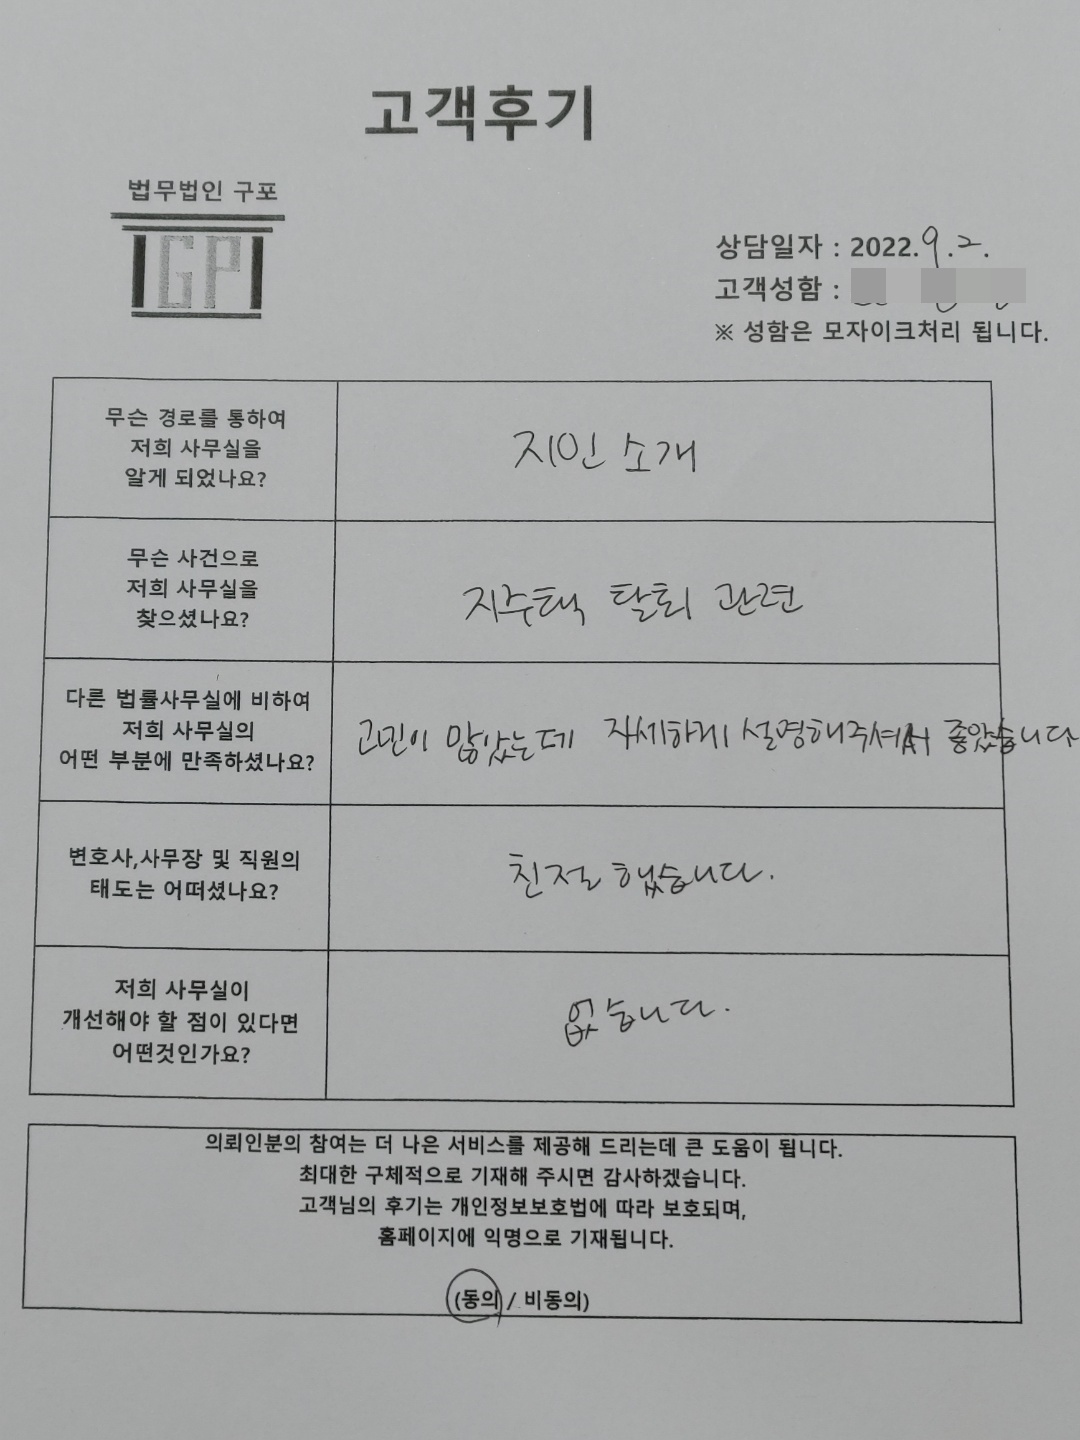 고객후기
법무법인 구포
IGPI
상담일자 : 2022.9.2.
고객성함 :
※ 성함은 모자이크처리 됩니다.
무슨 경로를 통하여
저희 사무실을
알게 되었나요?
지인 소개
무슨 사건으로
저희 사무실을
찾으셨나요?
지주택 탈퇴 관련
다른 법률사무실에 비하여
저희 사무실의
어떤 부분에 만족하셨나요?
고민이 많았는데 자세하게 설명해주셔서 좋았습니다
변호사,사무장 및 직원의
태도는 어떠셨나요?
친절 했습니다.
저희 사무실이
개선해야 할 점이 있다면
어떤것인가요?
없습니다.
의뢰인분의 참여는 더 나은 서비스를 제공해 드리는데 큰 도움이 됩니다.
최대한 구체적으로 기재해 주시면 감사하겠습니다.
고객님의 후기는 개인정보보호법에 따라 보호되며,
홈페이지에 익명으로 기재됩니다.
(동의 / 비동의)